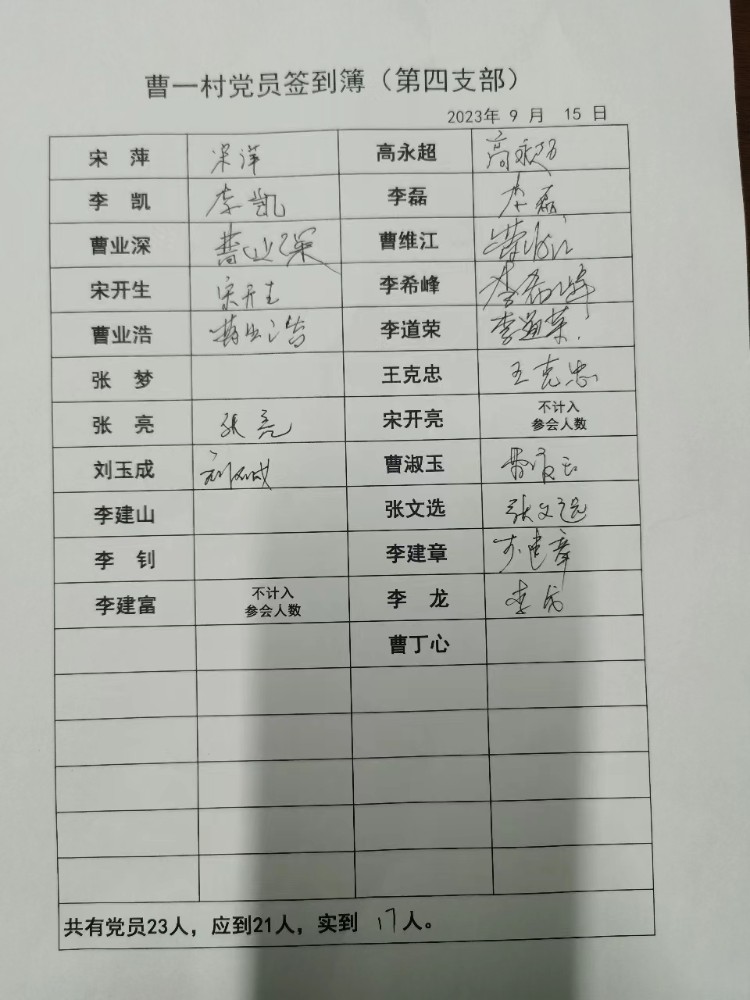 曹一村党员签到簿（第四支部）
2023年 9 月 15 日
宋 萍 宋萍 高永超 高永超
李 凯 李凯 李磊 李磊
曹业深 曹业深 曹维江 曹维江
宋开生 宋开生 李希峰 李希峰
曹业浩 曹业浩 李道荣 李道荣
张 梦 王克忠 王克忠
张 亮 张亮 宋开亮 不计入
参会人数
刘玉成 刘玉成 曹淑玉 曹淑玉
李建山 张文选 张文选
李 钊 李建章 李建章
李建富 不计入
参会人数 李 龙 李龙
曹丁心
共有党员23人，应到21人，实到 17 人。